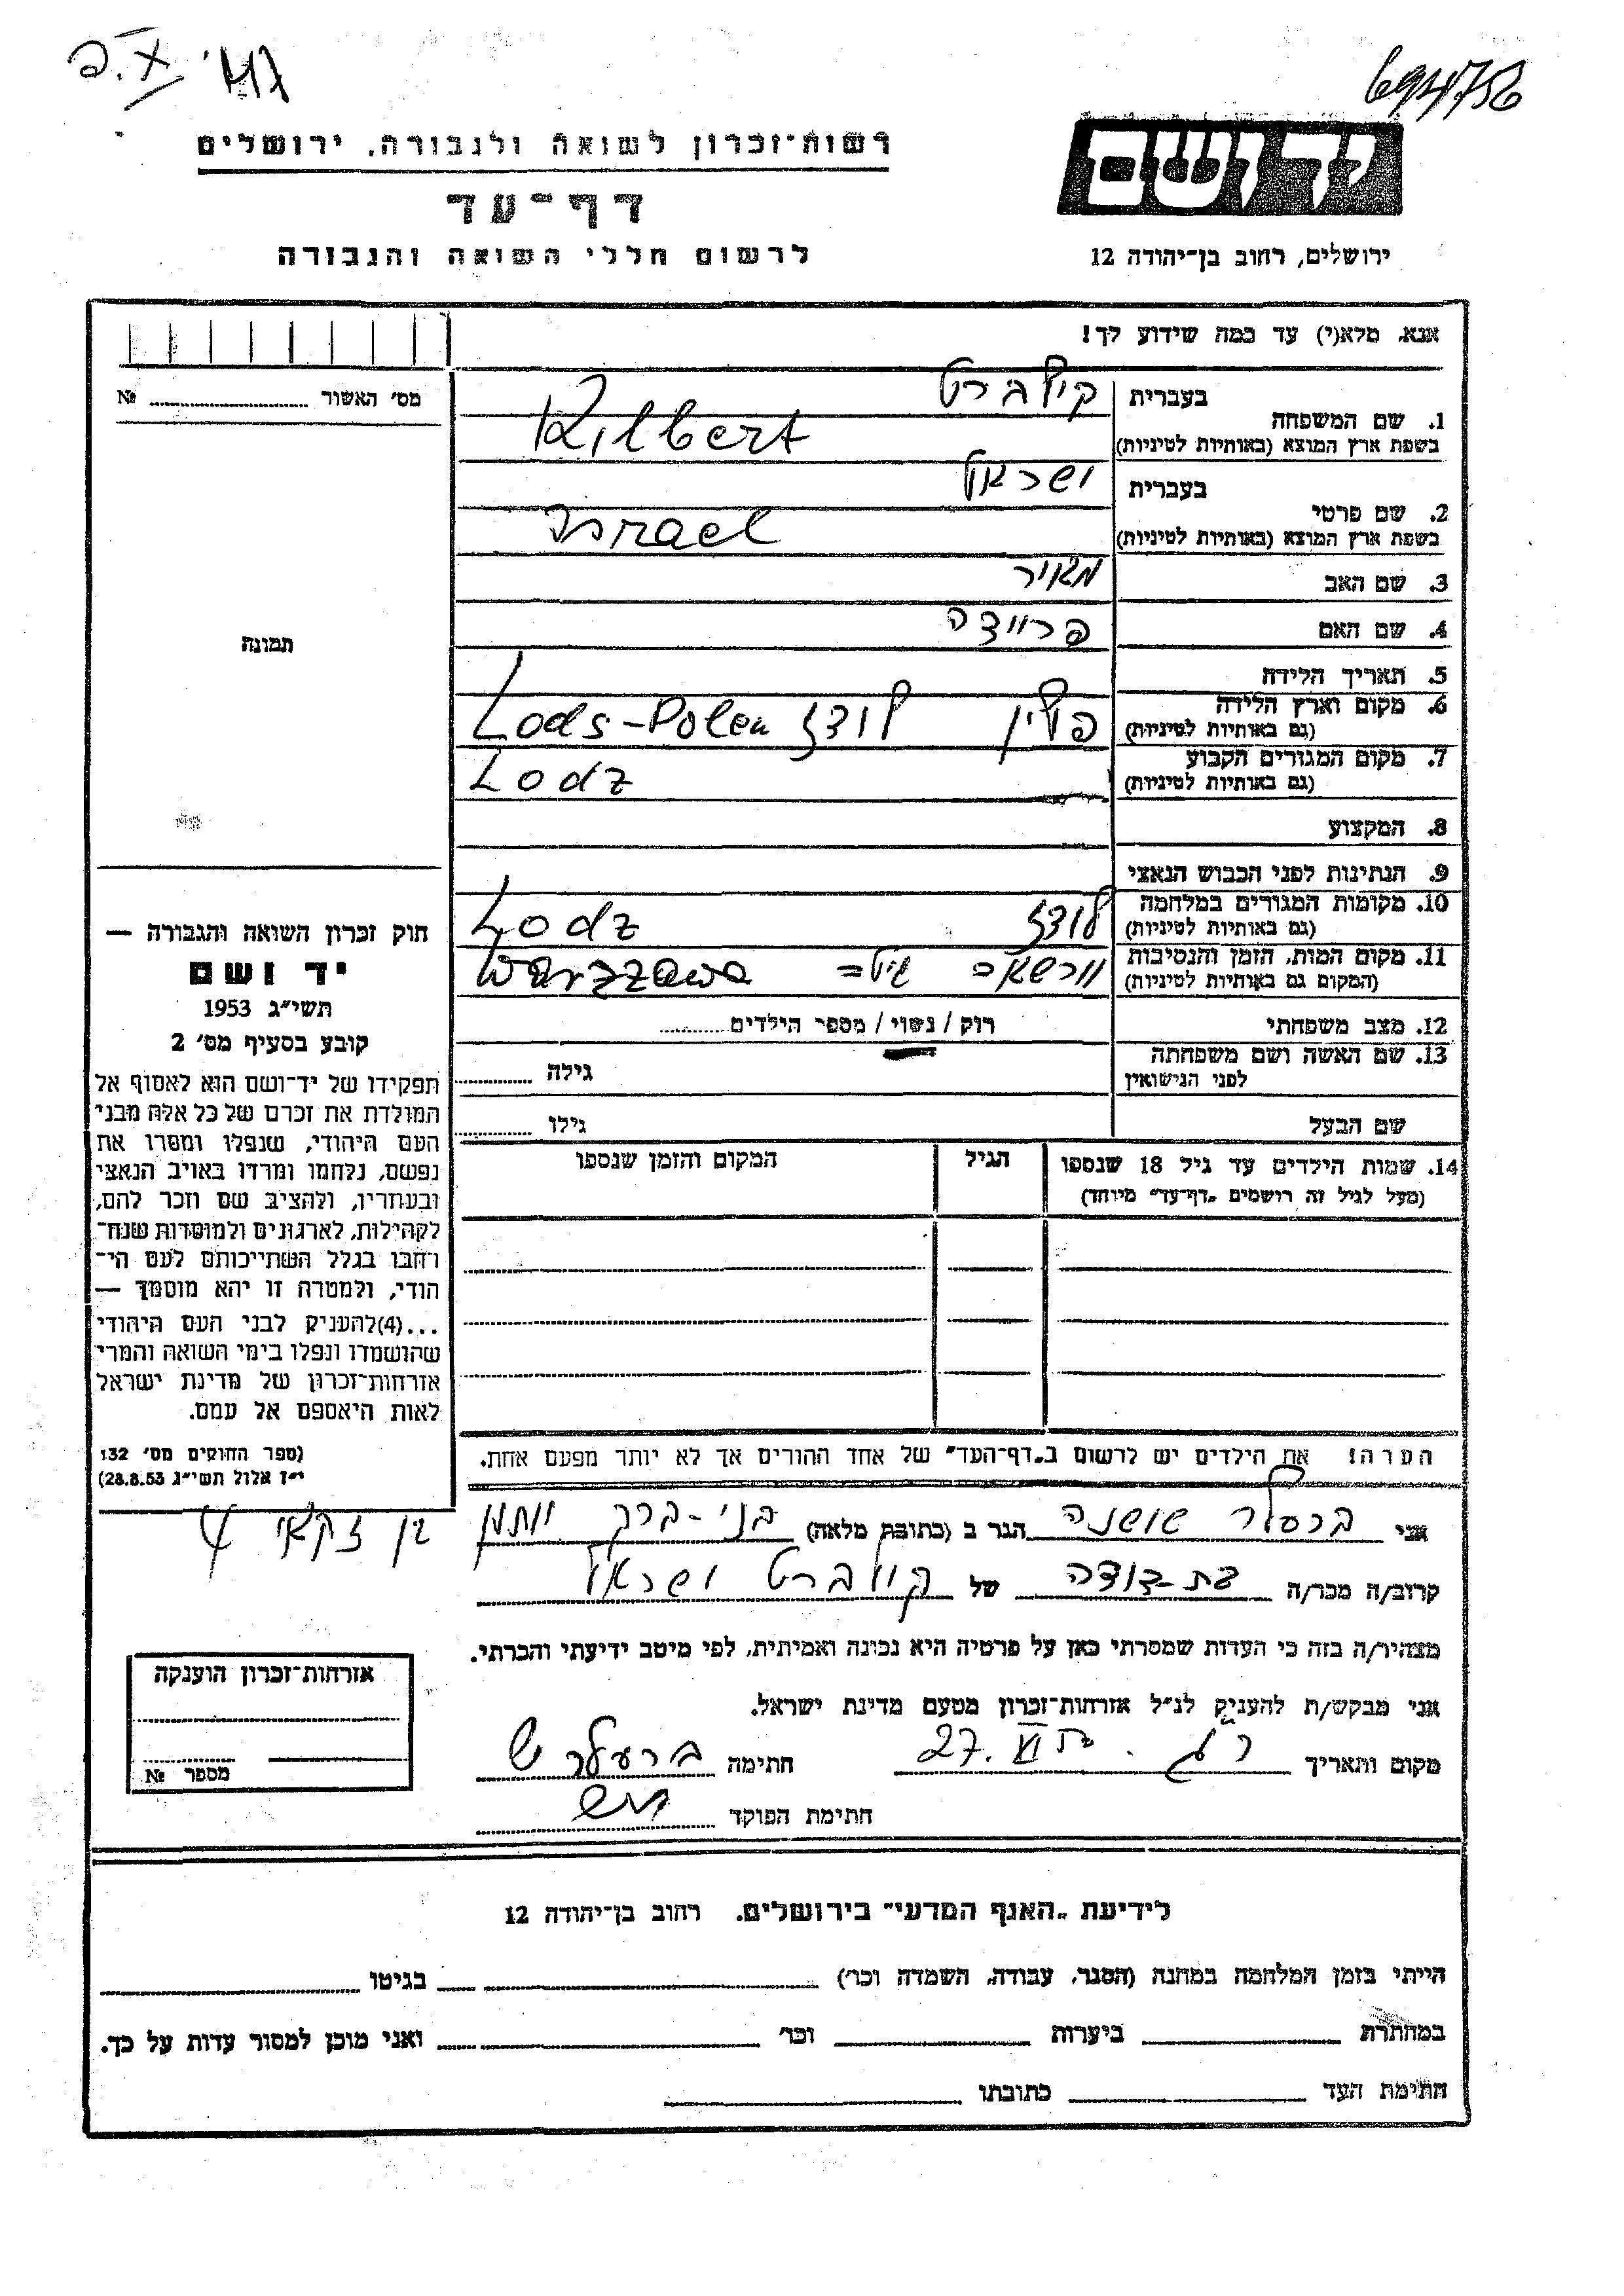 694756
יד ושם
ירושלים, רחוב בן־יהודה 12
רשות־זכרון לשואה ולגבורה, ירושלים
דף־עד
לרשום חללי השואה והגבורה
אנא, מלא(י) עד כמה שידוע לך!
מס׳ האשור № ........
בעברית קילברט
1. שם המשפחה
בשפת ארץ המוצא (באותיות לטיניות) Kilbert
בעברית ישראל
2. שם פרטי
בשפת ארץ המוצא (באותיות לטיניות) Israel
3. שם האב מאיר
4. שם האם
5. תאריך הלידה
6. מקום וארץ הלידה פולין לודז Lods-Polen
(גם באותיות לטיניות)
7. מקום המגורים הקבוע Lodz
(גם באותיות לטיניות)
8. המקצוע
9. הנתינות לפני הכבוש הנאצי
10. מקומות המגורים במלחמה לודז Lodz
(גם באותיות לטיניות)
11. מקום המות, הזמן והנסיבות וורשאב Warzzawa
(המקום גם באותיות לטיניות)
12. מצב משפחתי רוק / נשוי / מספר הילדים ........
13. שם האשה ושם משפחתה גילה ........
לפני הנישואין
שם הבעל גילו ........
14. שמות הילדים עד גיל 18 שנספו הגיל המקום והזמן שנספו
(מעל לגיל זה רושמים „דף־עד״ מיוחד)
הערה! את הילדים יש לרשום ב„דף־העד״ של אחד ההורים אך לא יותר מפעם אחת.
תמונה
חוק זכרון השואה והגבורה —
יד ושם
תשי״ג 1953
קובע בסעיף מס׳ 2
תפקידו של יד־ושם הוא לאסוף אל
המולדת את זכרם של כל אלה מבני
העם היהודי, שנפלו ומסרו את
נפשם, נלחמו ומרדו באויב הנאצי
ובעוזריו, ולהציב שם וזכר להם,
לקהילות, לארגונים ולמוסדות שנח־
רחבו בגלל השתייכותם לעם הי־
הודי, ולמטרה זו יהא מוסמך —
...(4)להעניק לבני העם היהודי
שהושמדו ונפלו בימי השואה והמרי
אזרחות־זכרון של מדינת ישראל
לאות היאספם אל עמם.
(ספר החוקים מס׳ 132
י״ז אלול תשי״ג 28.8.53)
אני ברסלר שושנה הגר ב (כתובת מלאה) בני-ברק יוחנן בן זקאי 4
קרוב/ה מכר/ה בת-דודה של קילברט ישראל
מצהיר/ה בזה כי העדות שמסרתי כאן על פרטיה היא נכונה ואמיתית, לפי מיטב ידיעתי והכרתי.
אני מבקש/ת להעניק לנ״ל אזרחות־זכרון מטעם מדינת ישראל.
מקום ותאריך ר״ג 27. VI. חתימה ברעלר ש
חתימת הפוקד
אזרחות־זכרון הוענקה
מספר №
לידיעת „האגף המדעי״ בירושלים. רחוב בן־יהודה 12
הייתי בזמן המלחמה במחנה (הסגר, עבודה, השמדה וכר׳) בגיטו
במחתרת ביערות וכר׳ ואני מוכן למסור עדות על כך.
חתימת העד כתובתו